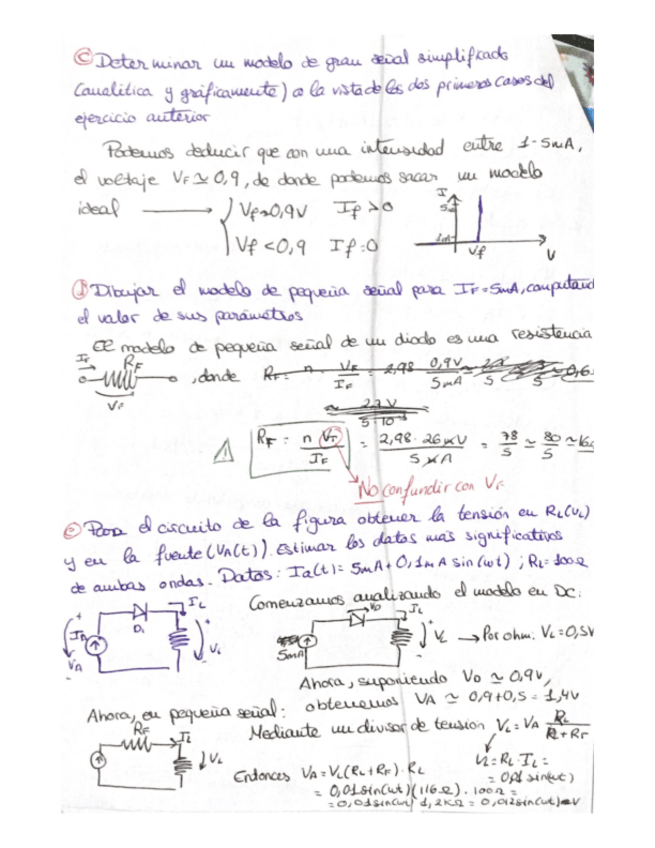 c) Determinar un modelo de gran señal simplificado
(analítica y gráficamente) a la vista de los dos primeros casos del
ejercicio anterior
Podemos deducir que con una intensidad entre 1-5mA,
el voltaje VF ≃ 0,9, de donde podemos sacar un modelo
ideal → { Vf≈0,9V If>0
Vf<0,9 If=0
I
5mA
1mA
Vf
V
d) Dibujar el modelo de pequeña señal para IF=5mA, computand
el valor de sus parámetros
El modelo de pequeña señal de un diodo es una resistencia
IF RF VF , donde RF = n VF/IF = 2,98 0,9V/5mA
2,7V / 5·10⁻³
⚠ RF = n VT/IF = 2,98·26mV/5mA = 78/5 ≃ 80/5 ≃ 16
No confundir con VF
e) Para el circuito de la figura obtener la tensión en RL(VL)
y en la fuente (VA(t)). Estimar los datos más significativos
de ambas ondas. Datos: Ia(t)= 5mA+0,1mA sin(wt) ; RL=100Ω
Comenzamos analizando el modelo en DC:
IA VA D1 IL VL
5mA VD IL VL → Por ohm: VL=0,5V
Ahora, suponiendo VD ≃ 0,9V,
obtenemos VA ≃ 0,9+0,5 = 1,4V
Ahora, en pequeña señal:
RF IL VL
Mediante un divisor de tensión VL=VA RL/RL+RF
VL=RL·IL=
=0,01 sin(wt)
Entonces VA=VL(RL+RF)·RL
= 0,01sin(wt)(116Ω)·100Ω =
=0,01sin(wt) 1,2KΩ = 0,012sin(wt) V